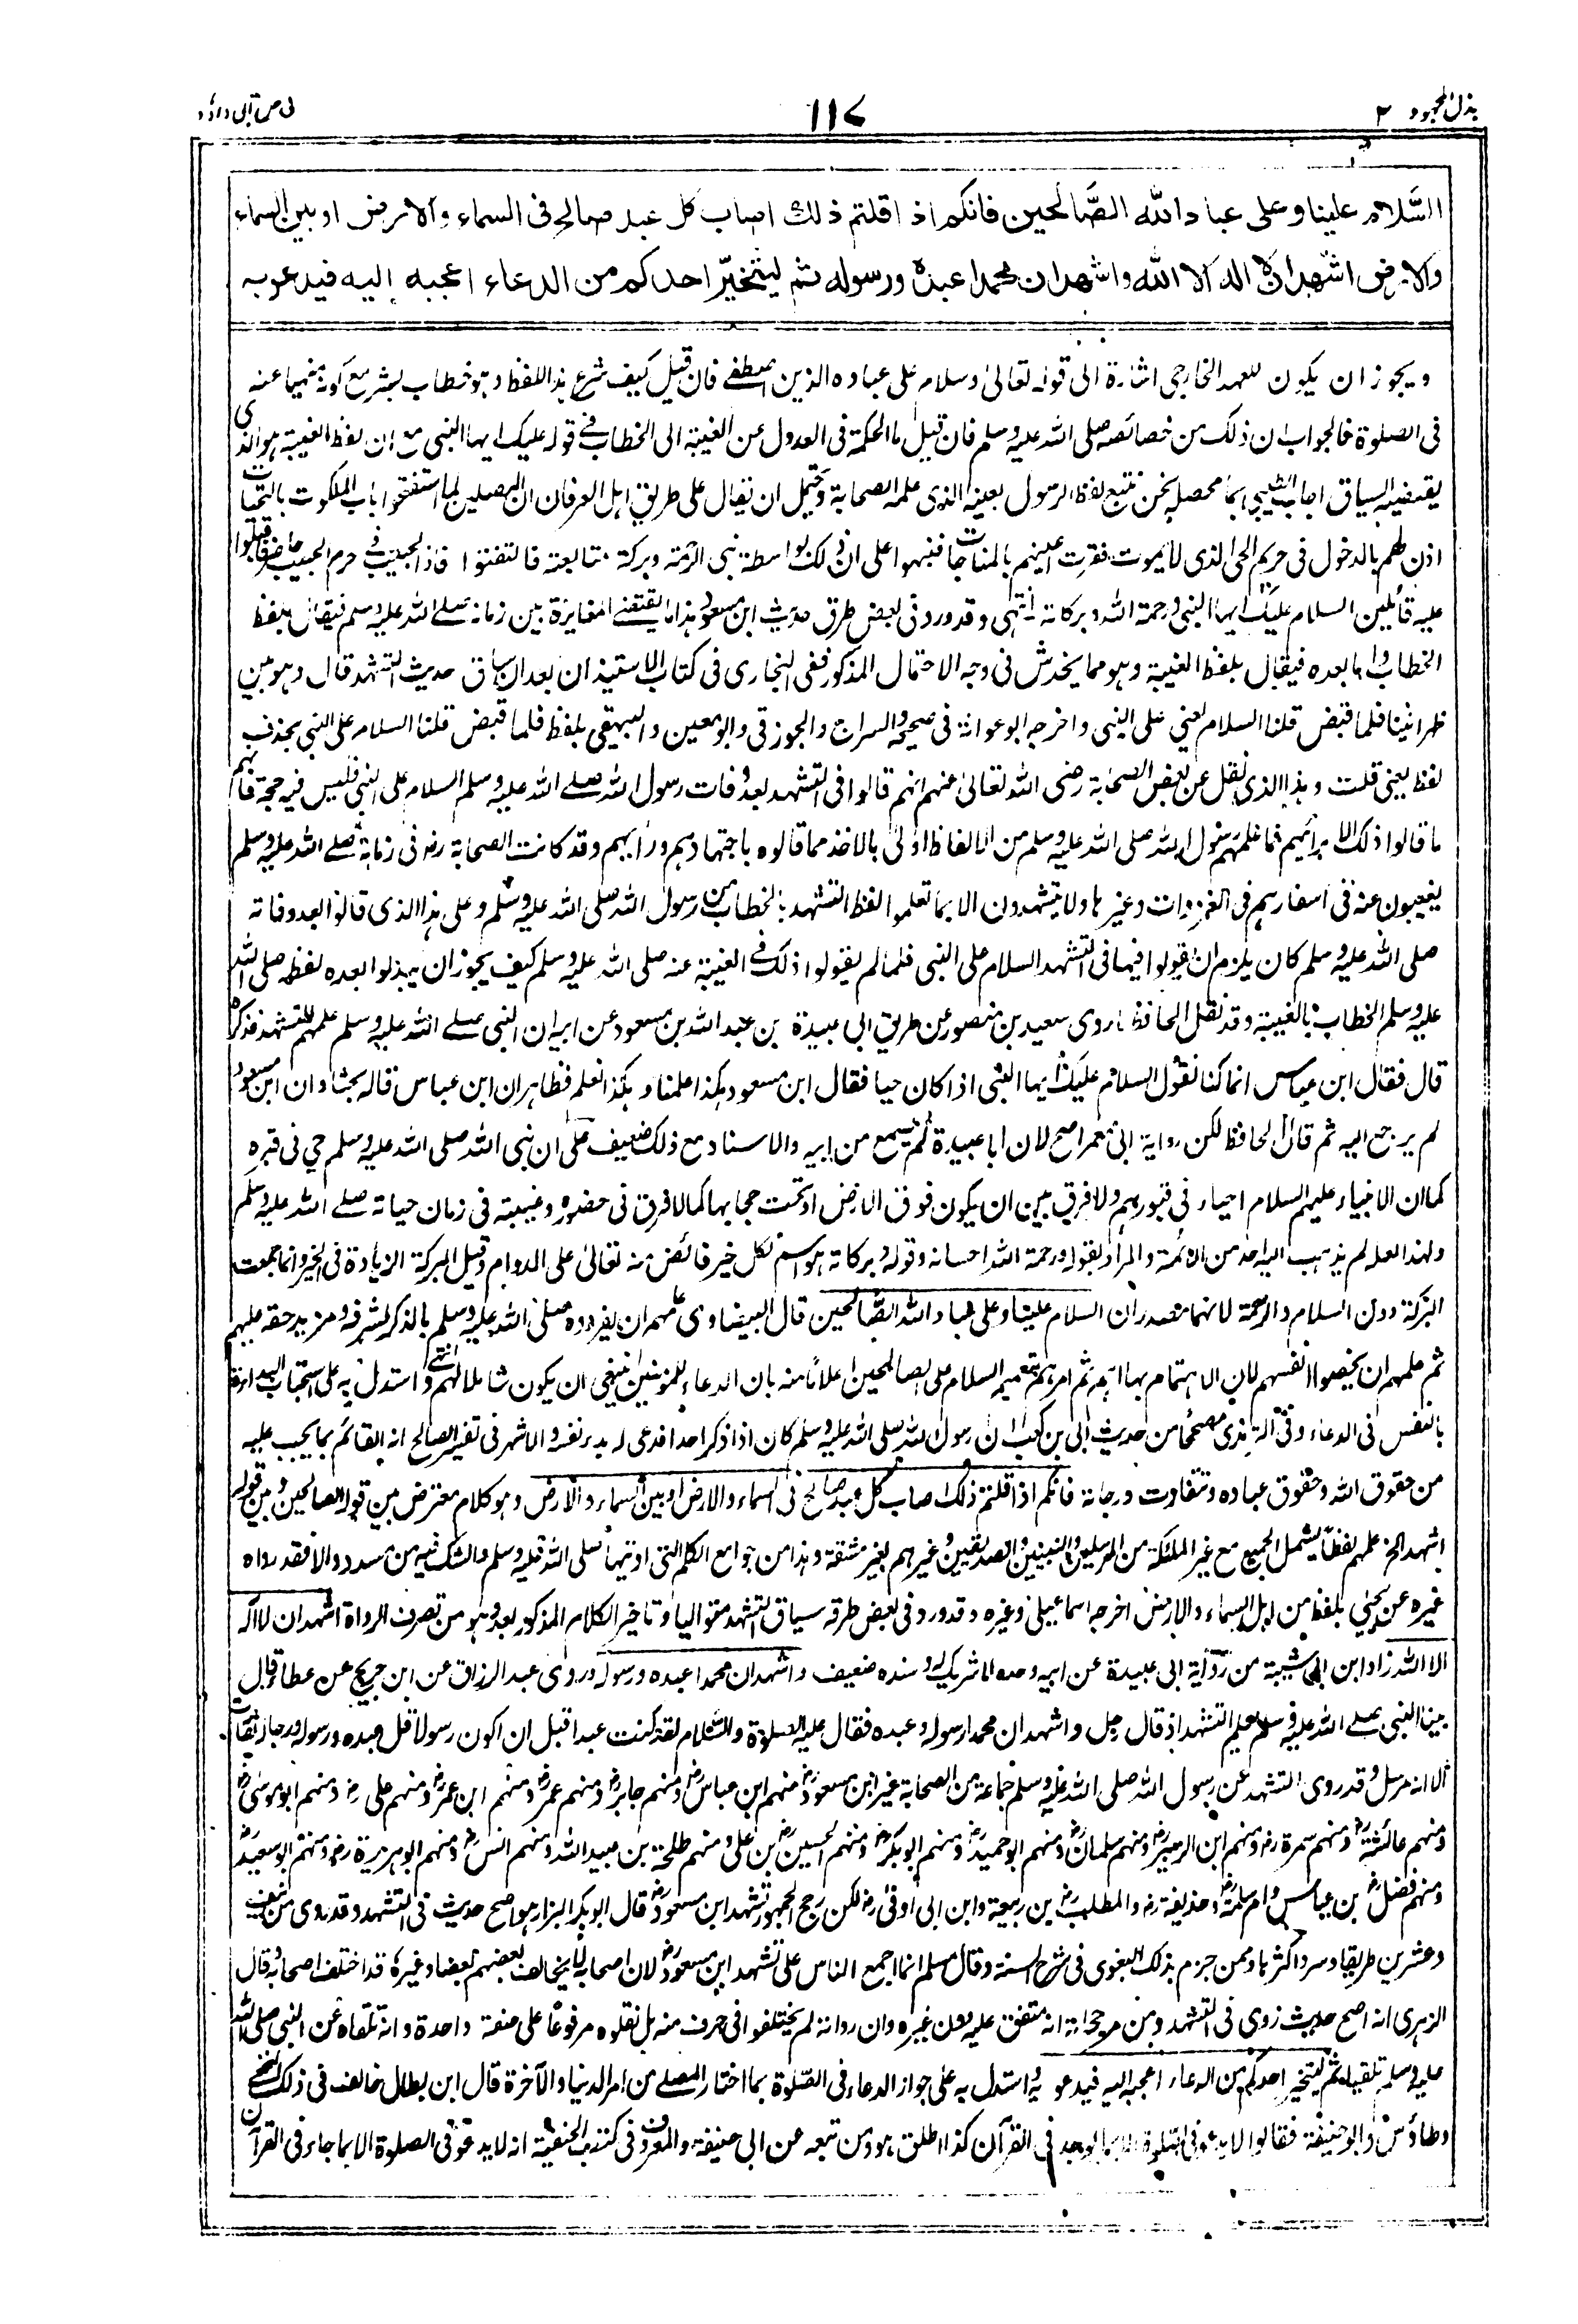 بذل المجهود ٢
١١٧
فى حل أبى داؤد
السَّلام علينا وعلى عباد الله الصَّالحين فانكم اذا قلتم ذلك اصاب كل عبد صالح فى السماء والارض او بين السماء
والارض اشهد ان لا اله الا الله واشهد ان محمدا عبده ورسوله ثم ليتخيّر احدكم من الدعاء اعجبه اليه فيدعو به
ويجوز ان يكون للعهد الخارجى اشارة الى قوله تعالىٰ وسلام على عباده الذين اصطفى فان قيل كيف شرع هذا اللفظ وهو خطاب بشر مع كونه منهيا عنه
فى الصلوة فالجواب ان ذلك من خصائصه صلى الله عليه وسلم فان قيل ما الحكمة فى العدول عن الغيبة الى الخطاب فى قوله عليك ايها النبى مع ان لفظ الغيبة هو الذى
يقتضيه السياق اجاب الطيبى بما محصله نحن نتبع لفظ الرسول بعينه الذى علمه الصحابة ويحتمل ان يقال على طريق اهل العرفان ان المصلين لما استفتحوا باب الملكوت بالتحيات
اذن لهم بالدخول فى حريم الحى الذى لا يموت فقرت اعينهم بالمناجات فنبهوا على ان ذلك بواسطة نبى الرحمة وبركة متابعته فالتفتوا فاذا الحبيب فى حرم الحبيب حاضر فاقبلوا
عليه قائلين السلام عليك ايها النبى ورحمة الله وبركاته انتهى وقد ورد فى بعض طرق حديث ابن مسعود هذا ما يقتضى المغايرة بين زمانه صلى الله عليه وسلم فيقال بلفظ
الخطاب واما بعده فيقال بلفظ الغيبة وهو مما يخدش فى وجه الاحتمال المذكور ففى البخارى فى كتاب الاستيذان بعد ان ساق حديث التشهد قال وهو بين
ظهرانينا فلما قبض قلنا السلام يعنى على النبى واخرجه ابو عوانة فى صحيحه والسراج والجوزقى وابو نعيم والبيهقى بلفظ فلما قبض قلنا السلام على النبى بحذف
لفظ يعنى قلت وهذا الذى نقل عن بعض الصحابة رضى الله تعالىٰ عنهم انهم قالوا فى التشهد بعد وفات رسول الله صلى الله عليه وسلم السلام على النبى فليس فيه حجة فانهم
ما قالوا ذلك الا برائيهم فما علمهم رسول الله صلى الله عليه وسلم من الالفاظ اولىٰ بالاخذ مما قالوه باجتهادهم ورأيهم وقد كانت الصحابة رض فى زمانه صلى الله عليه وسلم
يغيبون عنه فى اسفارهم فى الغزوات وغيرها ولا يتشهدون الا بما تعلموا لفظ التشهد بالخطاب من رسول الله صلى الله عليه وسلم وعلى هذا الذى قالوا بعد وفاته
صلى الله عليه وسلم كان يلزم ان يقولوا فيها فى التشهد السلام على النبى فلما لم يقولوا ذلك فى الغيبة عنه صلى الله عليه وسلم كيف يجوز ان يبدلوا بعده لفظه صلى الله
عليه وسلم الخطاب بالغيبة وقد نقل الحافظ ما روى سعيد بن منصور عن طريق ابى عبيدة بن عبد الله بن مسعود عن ابيه ان النبى صلى الله عليه وسلم علمهم التشهد فذكره
قال فقال ابن عباس انما كنا نقول السلام عليك ايها النبى اذ كان حيا فقال ابن مسعود هكذا علمنا وهكذا نعلم فظاهر ان ابن عباس قاله بحثا وان ابن مسعود
لم يرجع اليه ثم قال الحافظ لكن رواية ابى معمر اصح لان ابا عبيدة لم يسمع من ابيه والاسناد مع ذلك ضعيف على ان نبى الله صلى الله عليه وسلم حي فى قبره
كما ان الانبياء عليهم السلام احياء فى قبورهم ولا فرق بين ان يكون فوق الارض او تحت حجابها كما لا فرق فى حضوره وغيبته فى زمان حياته صلى الله عليه وسلم
ولهذا لعله لم يذهب اليه احد من الائمة والمراد بقوله ورحمة الله احسانه وقوله وبركاته هو اسم لكل خير فائض منه تعالىٰ على الدوام وقيل البركة الزيادة فى الخير وانما جمعت
البركة دون السلام والرحمة لانهما مصدران السلام علينا وعلى عباد الله الصالحين قال البيضاوى علمهم ان يفردوه صلى الله عليه وسلم بالذكر لشرفه ومزيد حقه عليهم
ثم علمهم ان يخصوا انفسهم لان الاهتمام بها اهم ثم امرهم بتعميم السلام على الصالحين اعلاما منه بان الدعاء للمؤمنين ينبغى ان يكون شاملا لهم انتهى واستدل به على استحباب البداءة
بالنفس فى الدعاء وفى الترمذى مصححا من حديث ابى بن كعب ان رسول الله صلى الله عليه وسلم كان اذا ذكر احدا فدعى له بدء نفسه والاشهر فى تفسير الصالح انه القائم بما يجب عليه
من حقوق الله وحقوق عباده وتتفاوت درجاته فانكم اذا قلتم ذلك اصاب كل عبد صالح فى السماء والارض او بين السماء والارض وهو كلام معترض بين قوله الصالحين وبين قوله
اشهد الخ علمهم لفظا يشمل الجميع مع غير الملئكة من المرسلين والنبيين والصديقين وغيرهم بغير مشقة وهذا من جوامع الكلم التى اوتيها صلى الله عليه وسلم والشك فيه من مسدد والا فقد رواه
غيره عن يحيى بلفظ من اهل السماء والارض اخرجه اسماعيلى وغيره وقد ورد فى بعض طرقه سياق التشهد متواليا وتاخير الكلام المذكور بعد وهو من تصرف الرواة اشهد ان لا اله
الا الله زاد ابن ابى شيبة من رواية ابى عبيدة عن ابيه وحده لا شريك له وسنده ضعيف واشهد ان محمدا عبده ورسوله وروى عبد الرزاق عن ابن جريج عن عطاء قال
بينا النبى صلى الله عليه وسلم يعلم التشهد اذ قال رجل واشهد ان محمدا رسوله وعبده فقال عليه الصلوة والسلام لقد كنت عبدا قبل ان اكون رسولا قل عبده ورسوله ورجاله ثقات
الا انه مرسل وقد روى التشهد عن رسول الله صلى الله عليه وسلم جماعة من الصحابة غير ابن مسعود منهم ابن عباس ومنهم جابر ومنهم عمر ومنهم ابن عمر ومنهم على رض ومنهم ابو موسىٰ
ومنهم عائشة ومنهم سمرة رض ومنهم ابن الزبير ومنهم سلمان ومنهم ابو حميد ومنهم ابو بكر ومنهم الحسين بن على ومنهم طلحة بن عبيد الله ومنهم انس ومنهم ابو هريرة رض ومنهم ابو سعيد
ومنهم فضل بن عباس وام سلمة وحذيفة رض والمطلب بن ربيعة وابن ابى اوفى رض لكن رجح الجمهور تشهد ابن مسعود قال ابو بكر البزار هو اصح حديث فى التشهد وقد روى من نيف
وعشرين طريقا وسرد اكثرها وممن جزم بذلك البغوى فى شرح السنة وقال مسلم انما اجمع الناس على تشهد ابن مسعود لان اصحابه لا يخالف بعضهم بعضا وغيره قد اختلف اصحابه وقال
الزهرى انه اصح حديث روى فى التشهد ومن مرجحاته انه متفق عليه دون غيره وان رواته لم يختلفوا فى حرف منه بل نقلوه مرفوعا على صفة واحدة وانه تلقاه عن النبى صلى الله
عليه وسلم تلقينا ثم ليتخير احدكم من الدعاء اعجبه اليه فيدعو به واستدل به على جواز الدعاء فى الصلوة بما اختار المصلى من امر الدنيا والآخرة قال ابن بطال خالف فى ذلك النخعى
وطاؤس وابو حنيفة فقالوا لا يدعو فى الصلوة الا بما يوجد فى القرآن كذا اطلق هو ومن تبعه عن ابى حنيفة والمعروف فى كتب الحنفية انه لا يدعو فى الصلوة الا بما جاء فى القرآن